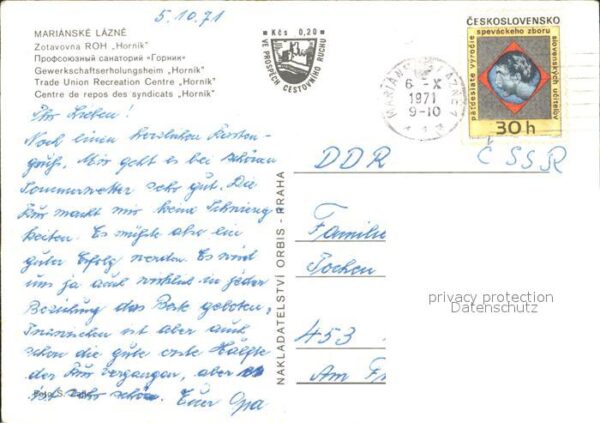 5.10.71
MARIÁNSKÉ LÁZNĚ
Zotavovna ROH „Horník"
Профсоюзный санаторий «Горник»
Gewerkschaftserholungsheim „Horník"
Trade Union Recreation Centre „Horník"
Centre de repos des syndicats „Horník"
Kčs 0,20
VE PROSPĚCH CESTOVNÍHO RUCHU
MARIÁNSKÉ LÁZNĚ
6.-X
1971
9-10
ČESKOSLOVENSKO
päťdesiate výročie speváckeho zboru slovenských učiteľov
30h
Ihr Lieben!
Noch einen herzlichen Karten-
gruß. Mir geht es bei schönem
Sommerwetter sehr gut. Die
Kur macht mir keine Schwierig
keiten. Es müßte aber ein
guter Erfolg werden. Es wird
uns ja auch wirklich in jeder
Beziehung das Beste geboten,
Inzwischen ist aber auch
schon die gute erste Hälfte
der Kur vergangen, aber es
ist sehr schön. Euer Opa
NAKLADATELSTVÍ ORBIS - PRAHA
DDR
ČSSR
Familie
Jochen
453
Am
privacy protection
Datenschutz